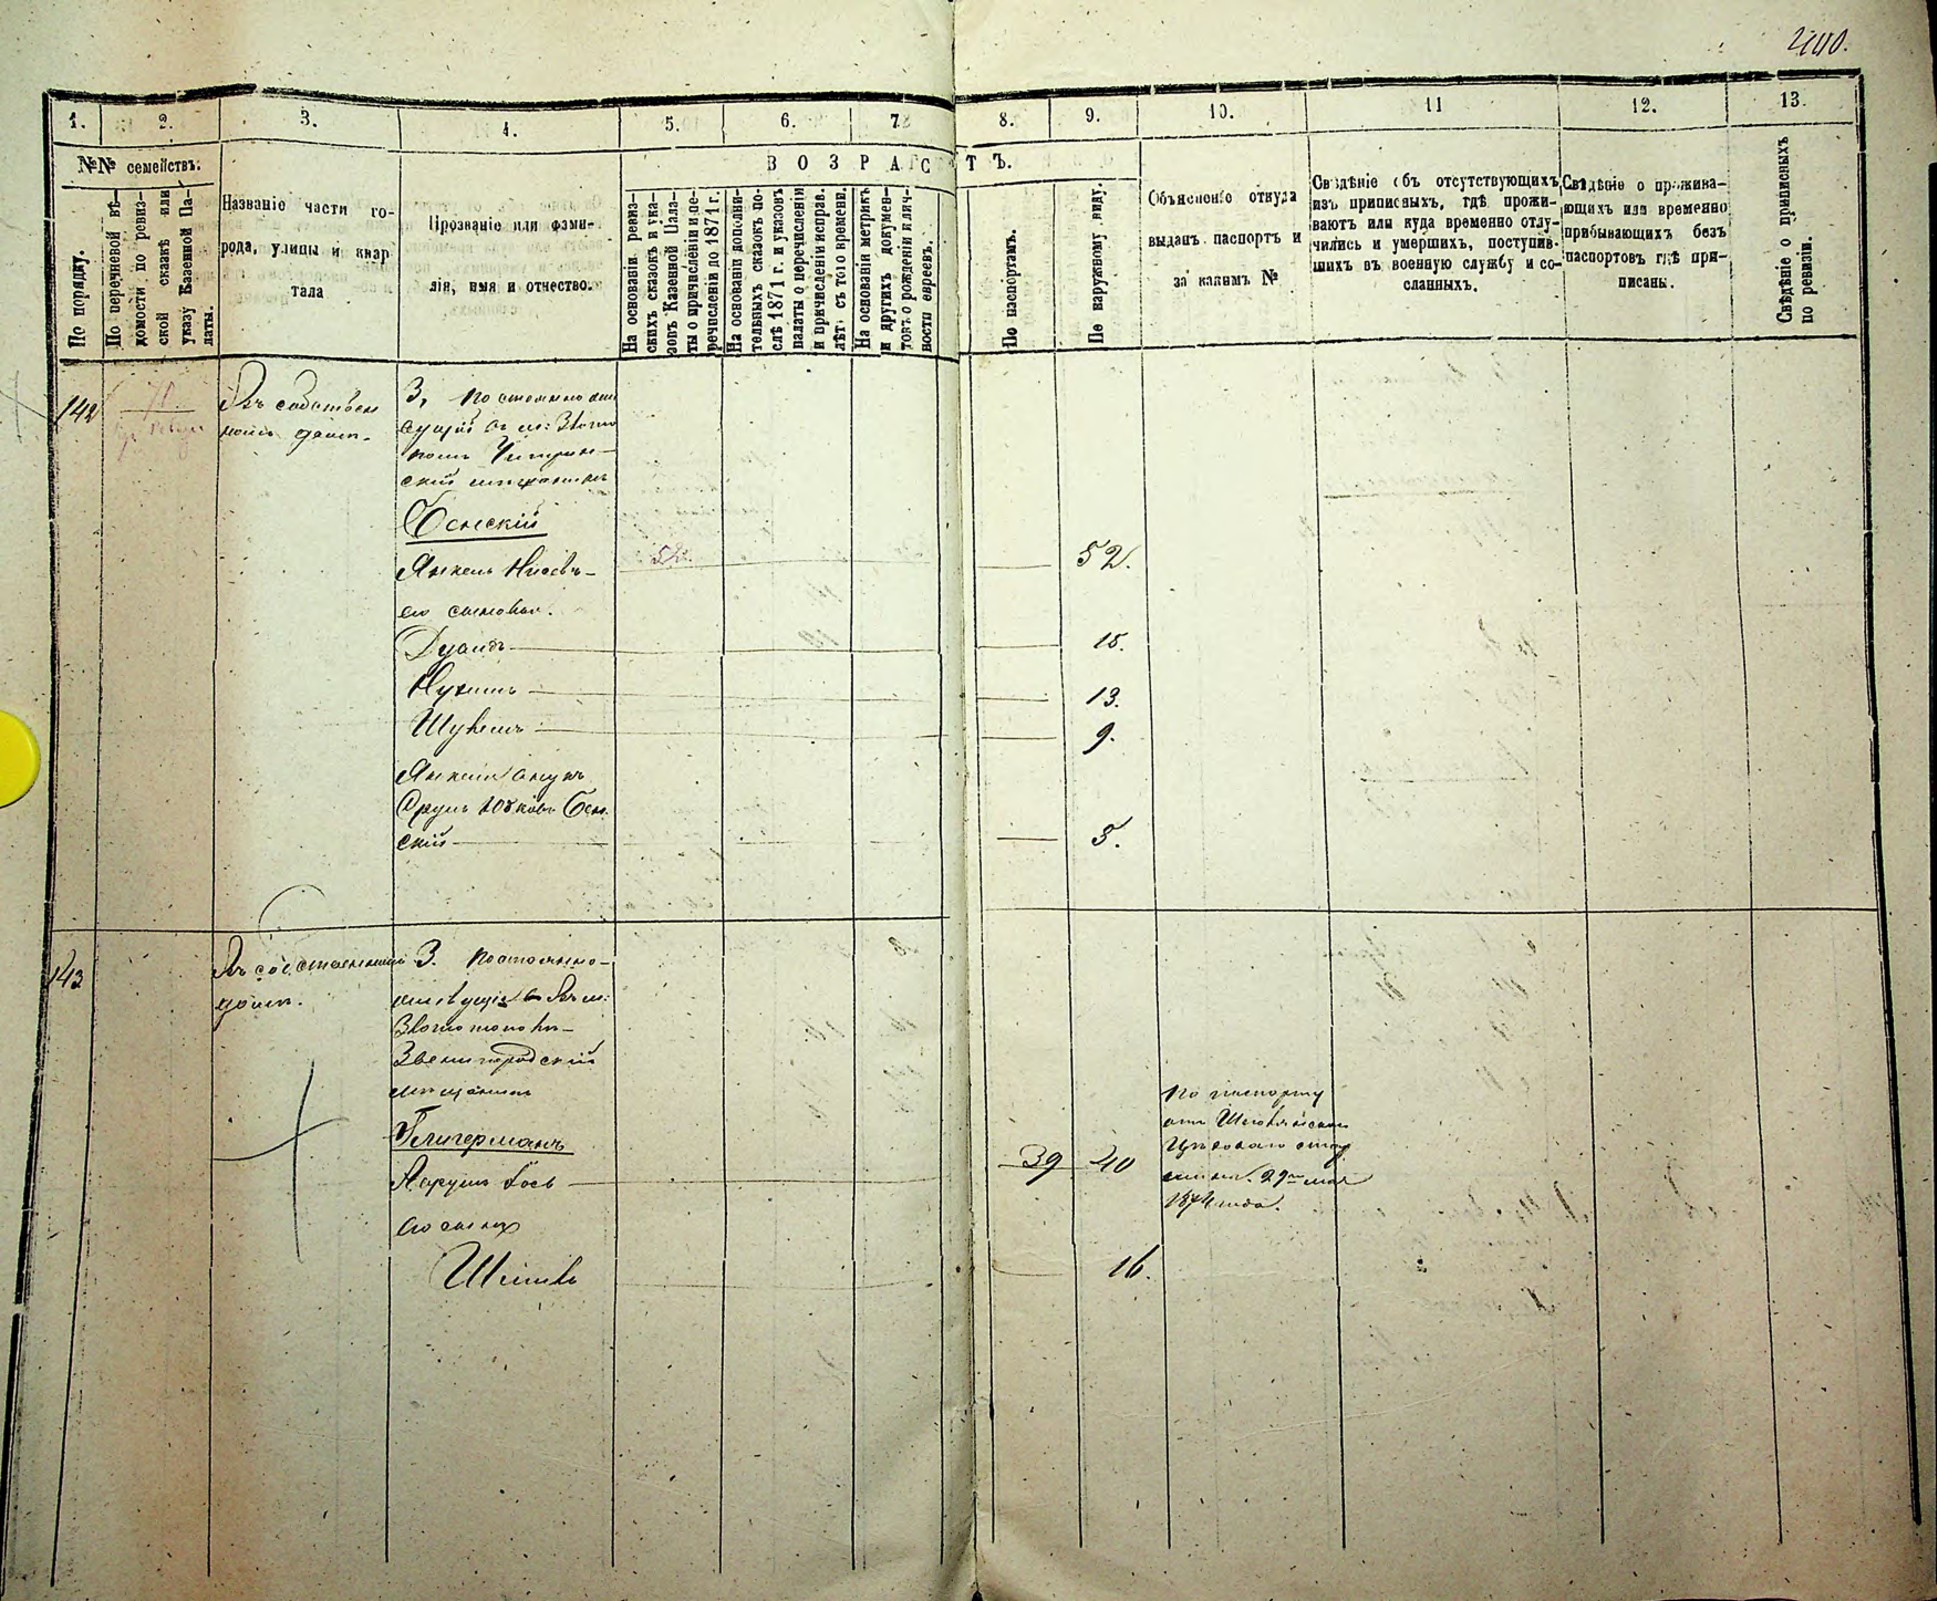 440.
1.
2.
3.
4.
5.
6.
7.
8.
9.
10.
11
12.
13.
№№ семействъ.
ВОЗРАСТЪ.
По порядку.
По перечневой вѣ-
домости по ревиз-
ской сказкѣ или
указу Казенной Па-
латы.
Названіе части го-
рода, улицы и квар
тала
Прозваніе или фами-
лія, имя и отчество.
На основаніи ревиз-
скихъ сказокъ и ука-
зовъ Казенной Пала-
ты о причисленіи и пе-
речисленіи до 1871 г.
На основаніи дополни-
тельныхъ сказокъ по-
слѣ 1871 г. и указовъ
палаты о перечисленіи
и причисленіи исправ.
лѣт. съ того времени.
На основаніи метрикъ
и другихъ докумен-
товъ о рожденіи и лич-
ности евреевъ.
По паспортамъ.
По наружному виду.
Объясненіе откуда
выданъ паспортъ и
за какимъ №
Свѣдѣніе объ отсутствующихъ
изъ приписныхъ, гдѣ прожи-
ваютъ или куда временно отлу-
чились и умершихъ, поступив-
шихъ въ военную службу и со-
сланныхъ.
Свѣдѣніе о прожива-
ющихъ или временно
прибывающихъ безъ
паспортовъ гдѣ при-
писаны.
Свѣдѣніе о приписныхъ
по ревизіи.
142
Въ собствен
номъ домѣ.
3, постоянно жи
вущій въ м:
скій мѣщанинъ
Бенскій
Янкель
52.
его сыновья.
Дувидъ
15.
Нухимъ
13.
Шулимъ
9.
Янкеля внукъ
Срулъ Юсковъ Бен
скій
5.
143
Въ собственномъ
домѣ.
3. постоянно-
живущій въ м:
Звенигородскій
мѣщанинъ
Гелигерманъ
39
40
По паспорту
отъ
29го мая
1874 года.
его сынъ
16.